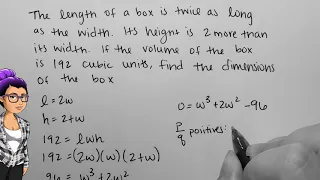 The length of a box is twice as long
as the width. Its height is 2 more than
its width. If the volume of the box
is 192 cubic units, find the dimensions
of the box
l = 2w
h = 2+w
192 = lwh
192 = (2w)(w)(2+w)
96 = w³+2w²
0 = w³+2w²-96
p/q positives: